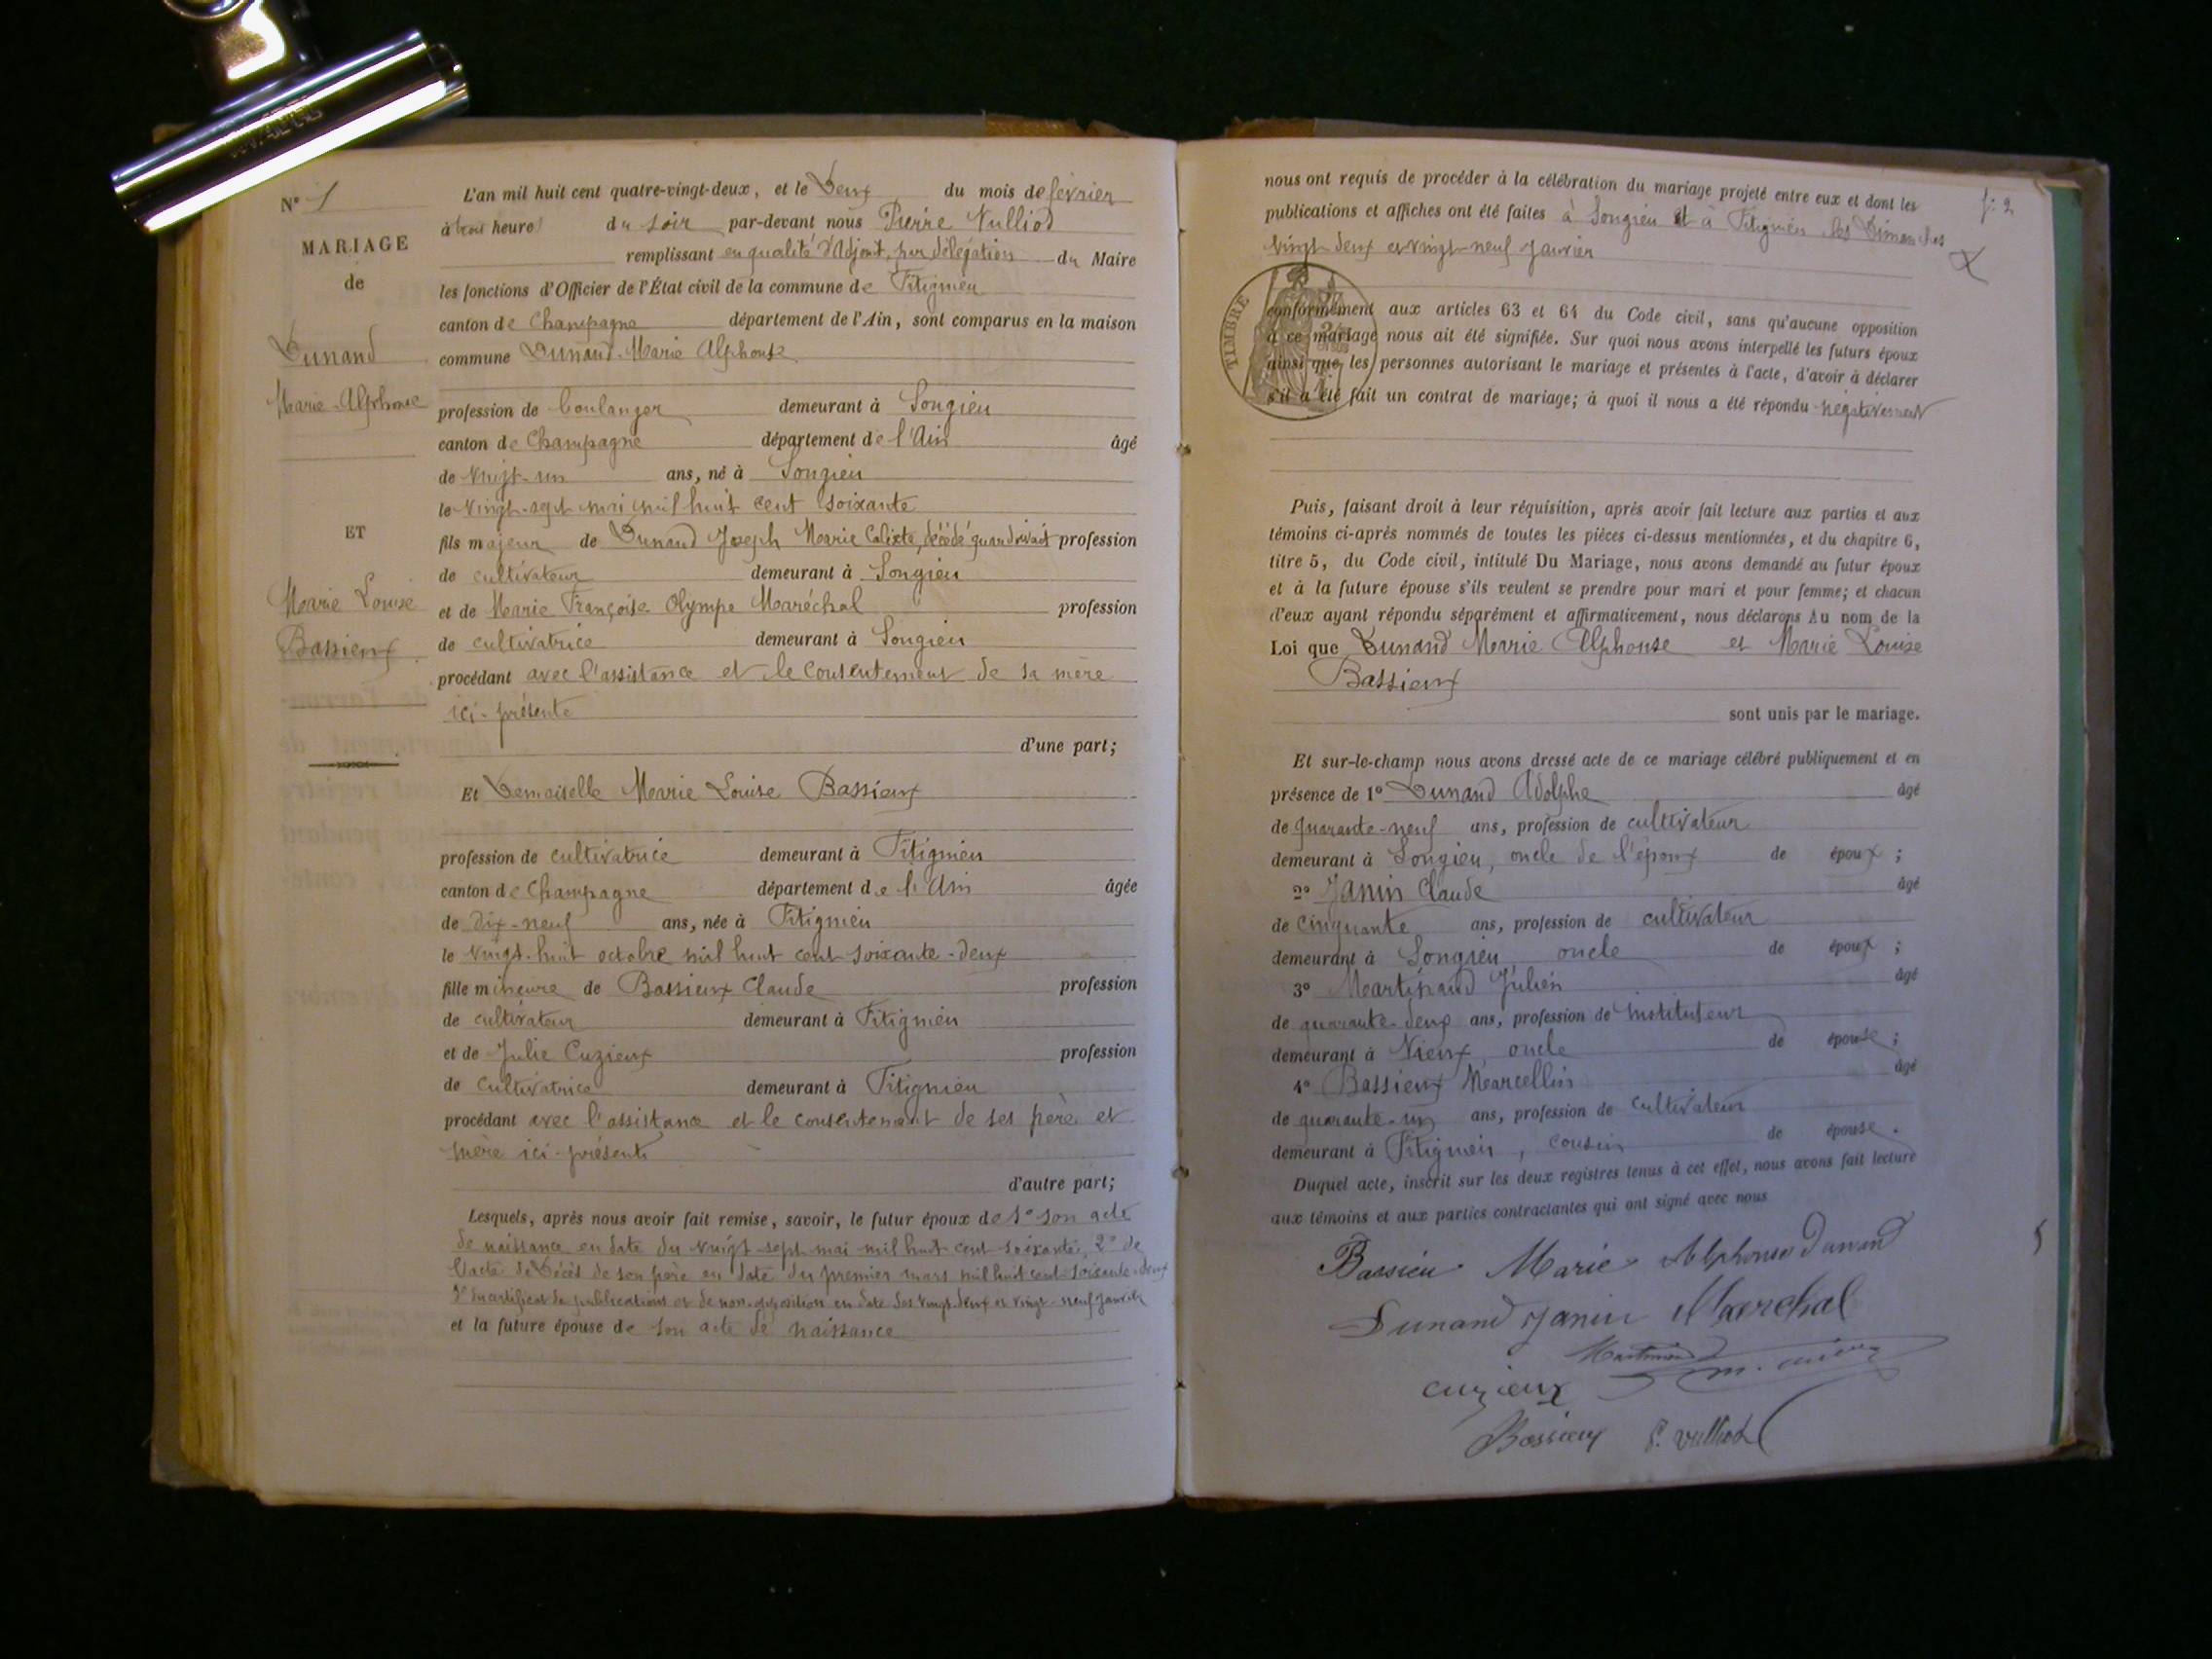 N° 1
MARIAGE
de
Dunand
Marie-Alphonse
ET
Marie Louise
Bassieux
L'an mil huit cent quatre-vingt-deux, et le Deux du mois de février
à trois heures du soir par-devant nous Pierre Vulliod
remplissant en qualité d'Adjoint, par délégation du Maire
les fonctions d'Officier de l'État civil de la commune de Fitignieu
canton de Champagne département de l'Ain, sont comparus en la maison
commune Dunand-Marie Alphonse
profession de boulanger demeurant à Songieu
canton de Champagne département de l'Ain âgé
de vingt-un ans, né à Songieu
le vingt-sept mai mil huit cent soixante
fils majeur de Dunand Joseph Marie Calixte, décédé, quand vivait profession
de cultivateur demeurant à Songieu
et de Marie Françoise Olympe Maréchal profession
de cultivatrice demeurant à Songieu
procédant avec l'assistance et le consentement de sa mère
ici-présente
d'une part;
Et Demoiselle Marie Louise Bassieux
profession de cultivatrice demeurant à Fitignieu
canton de Champagne département de l'Ain âgée
de dix-neuf ans, née à Fitignieu
le vingt-huit octobre mil huit cent soixante-deux
fille mineure de Bassieux Claude profession
de cultivateur demeurant à Fitignieu
et de Julie Cuzieux profession
de cultivatrice demeurant à Fitignieu
procédant avec l'assistance et le consentement de ses père et
mère ici-présents
d'autre part;
Lesquels, après nous avoir fait remise, savoir, le futur époux de 1° son acte
de naissance en date du vingt-sept mai mil huit cent soixante, 2° de
l'acte de Décès de son père en date du premier mars mil huit cent soixante-deux
3° du certificat de publications et de non-opposition en date des vingt-deux et vingt-neuf janvier
et la future épouse de son acte de naissance
f: 2
nous ont requis de procéder à la célébration du mariage projeté entre eux et dont les
publications et affiches ont été faites à Songieu et à Fitignieu les Dimanches
vingt-deux et vingt-neuf janvier
TIMBRE
conformément aux articles 63 et 64 du Code civil, sans qu'aucune opposition
à ce mariage nous ait été signifiée. Sur quoi nous avons interpellé les futurs époux
ainsi que les personnes autorisant le mariage et présentes à l'acte, d'avoir à déclarer
s'il a été fait un contrat de mariage; à quoi il nous a été répondu négativement
Puis, faisant droit à leur réquisition, après avoir fait lecture aux parties et aux
témoins ci-après nommés de toutes les pièces ci-dessus mentionnées, et du chapitre 6,
titre 5, du Code civil, intitulé Du Mariage, nous avons demandé au futur époux
et à la future épouse s'ils veulent se prendre pour mari et pour femme; et chacun
d'eux ayant répondu séparément et affirmativement, nous déclarons Au nom de la
Loi que Dunand Marie Alphonse et Marie Louise
Bassieux
sont unis par le mariage.
Et sur-le-champ nous avons dressé acte de ce mariage célébré publiquement et en
présence de 1° Dunand Adolphe âgé
de quarante-neuf ans, profession de cultivateur
demeurant à Songieu, oncle de l'époux de époux;
2° Janin Claude âgé
de cinquante ans, profession de cultivateur
demeurant à Songieu, oncle de époux;
3° Martinand Julien âgé
de quarante-deux ans, profession de instituteur
demeurant à Vieux, oncle de épouse;
4° Bassieux Marcellin âgé
de quarante-un ans, profession de cultivateur
demeurant à Fitignieu, cousin de épouse.
Duquel acte, inscrit sur les deux registres tenus à cet effet, nous avons fait lecture
aux témoins et aux parties contractantes qui ont signé avec nous
Bassieu Marie Alphonse Dunand
Dunand Janin Marechal
Martinand
cuzieux
Bassieux P. Vulliod